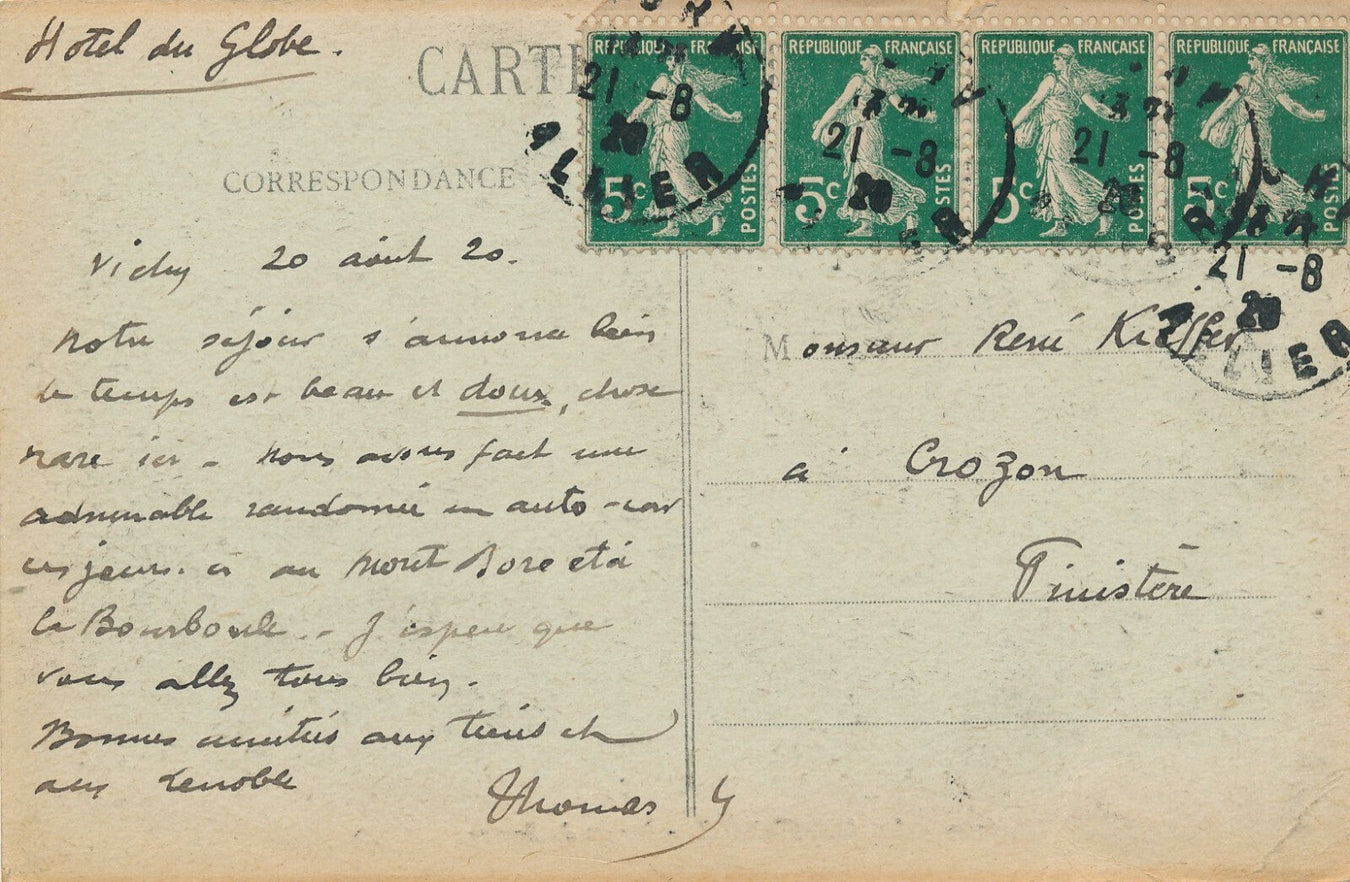 Hotel du Globe.
CARTE
CORRESPONDANCE
RÉPUBLIQUE FRANÇAISE
5c
POSTES
RÉPUBLIQUE FRANÇAISE
5c
POSTES
RÉPUBLIQUE FRANÇAISE
5c
POSTES
RÉPUBLIQUE FRANÇAISE
5c
POSTES
21 -8
20
ALLIER
21 -8
20
21 -8
20
21 -8
20
LIER
Vichy 20 août 20.
Notre séjour s'annonce bien
le temps est beau et doux, chose
rare ici - Nous avons fait une
admirable randonnée en auto-car
ces jours-ci au Mont Dore et à
la Bourboule - J'espère que
vous allez tous bien.
Bonnes amitiés aux tiens et
aux Lenoble
Thomas
Monsieur René Kieffer
à Crozon
Finistère